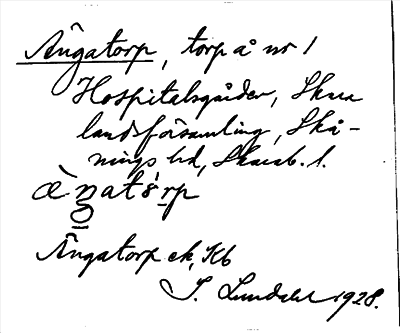 Ängatorp, torp å nr 1
Hospitalsgården, Skara
landsförsamling, Skå-
nings hd, Skarab. l.
Ängatorp ek, Kb
S. Lundahl 1928.